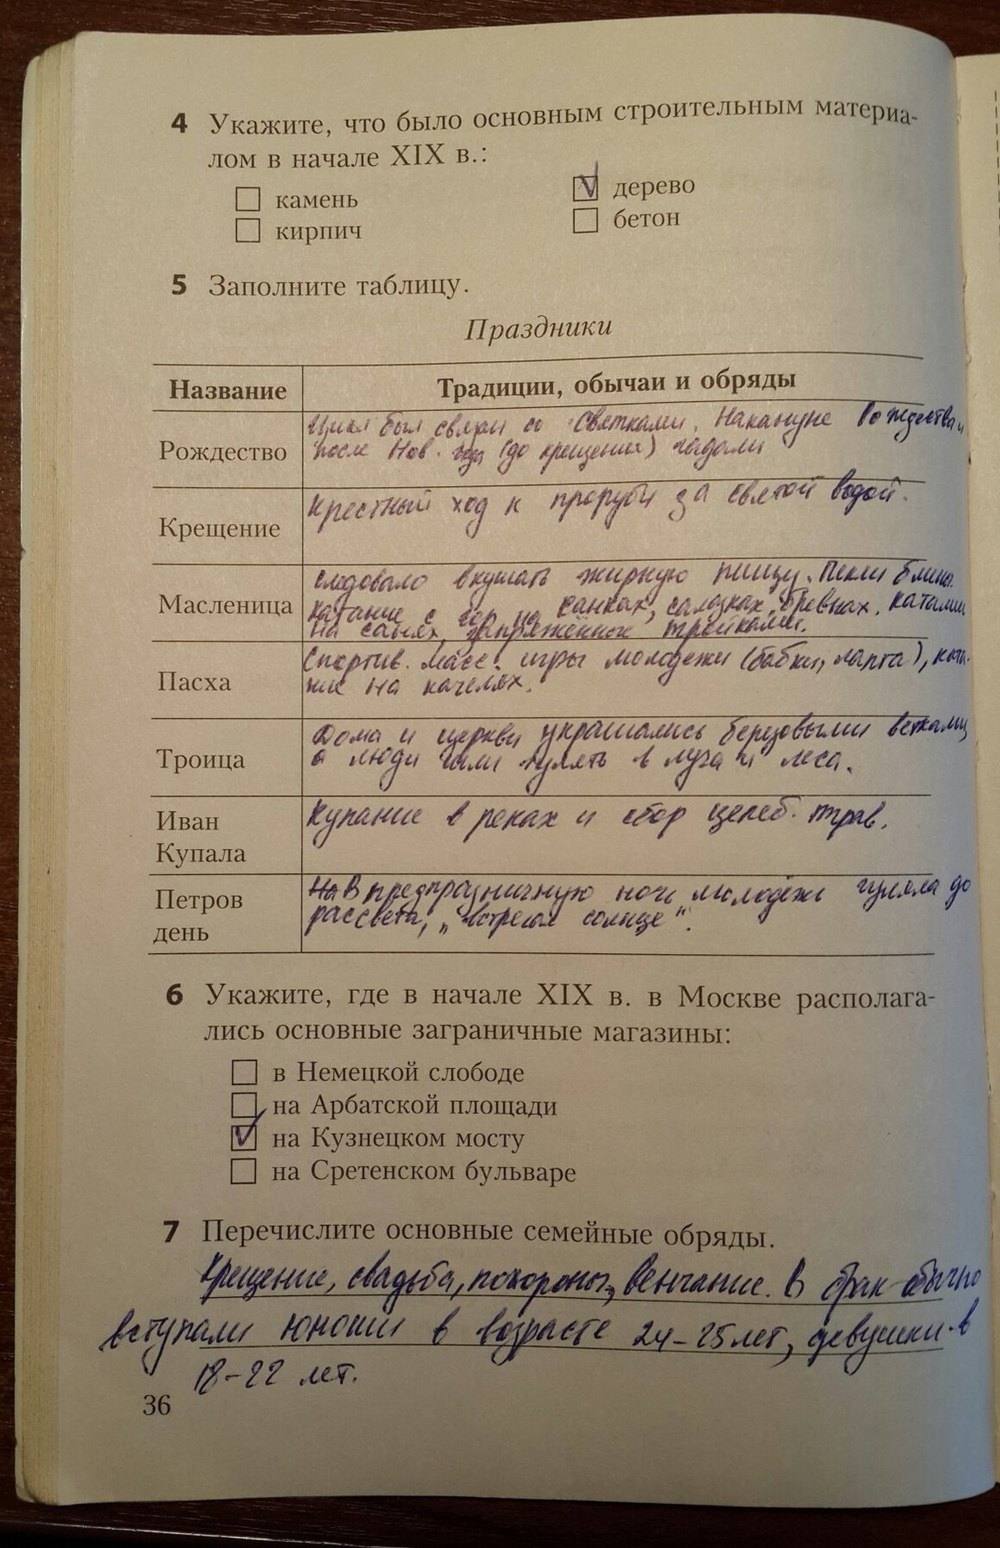 4 Укажите, что было основным строительным материа-
лом в начале XIX в.:
камень
дерево
кирпич
бетон
5 Заполните таблицу.
Праздники
Название
Традиции, обычаи и обряды
Рождество
Цикл был связан со Святками. Накануне Рождества и
после Нов. года (до крещения) гадали
Крещение
Крестный ход к проруби за святой водой.
Масленица
Следовало вкушать жирную пищу. Пекли блины.
Катание с гор на санках, салазках, бревнах. Катались
на санях, запряжённых тройками.
Пасха
Спортив. масс. игры молодежи (бабки, лапта), ката-
ние на качелях.
Троица
Дома и церкви украшались березовыми ветками,
а люди шли гулять в луга и леса.
Иван
Купала
Купание в реках и сбор целеб. трав.
Петров
день
В предпраздничную ночь молодёжь гуляла до
рассвета, "встречая солнце".
6 Укажите, где в начале XIX в. в Москве располага-
лись основные заграничные магазины:
в Немецкой слободе
на Арбатской площади
на Кузнецком мосту
на Сретенском бульваре
7 Перечислите основные семейные обряды.
Крещение, свадьба, похороны, венчание. В брак обычно
вступали юноши в возрасте 24-25 лет, девушки - в
18-22 лет.
36